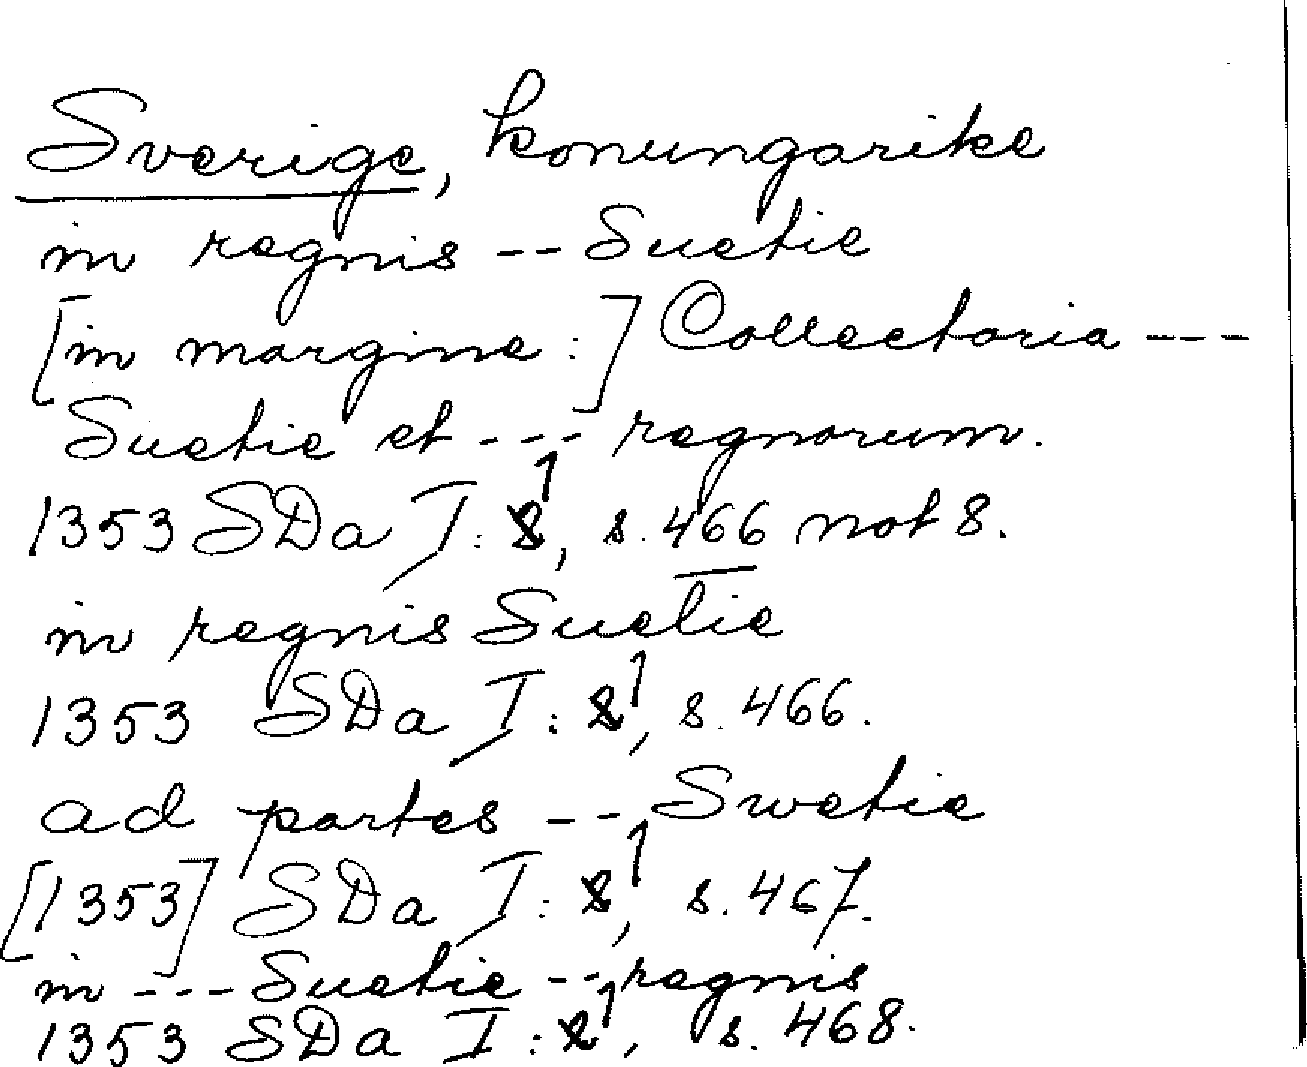 Sverige, konungarike
in regnis -- Suetie
[in margine:] Collectoria ---
Suetie et --- regnorum.
1353 SDa I:1, s. 466 not 8.
in regnis Suetie
1353 SDa I:1, s. 466.
ad partes --- Swetie
[1353] SDa I:1, s. 467.
in --- Suetie -- regnis
1353 SDa I:1, s. 468.